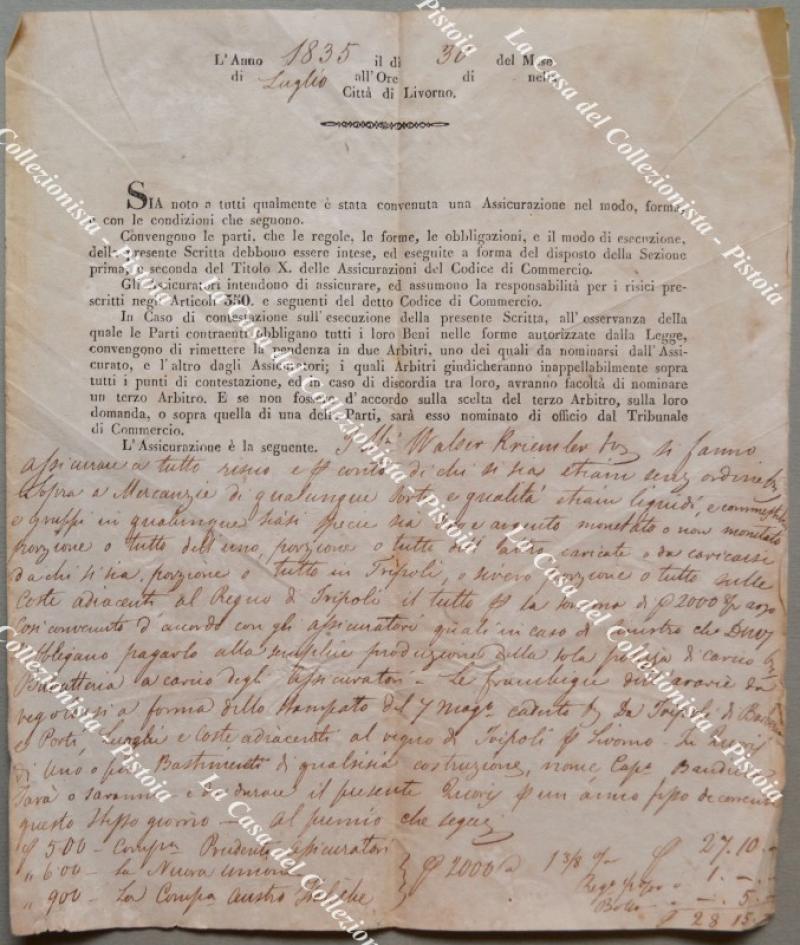 L'Anno 1835 il dì 30 del Mese
di Luglio all'Ore di nella
Città di Livorno.
SIA noto a tutti qualmente è stata convenuta una Assicurazione nel modo, forma,
e con le condizioni che seguono.
Convengono le parti, che le regole, le forme, le obbligazioni, e il modo di esecuzione,
della presente Scritta debbono essere intese, ed eseguite a forma del disposto della Sezione
prima, e seconda del Titolo X. delle Assicurazioni del Codice di Commercio.
Gli Assicuratori intendono di assicurare, ed assumono la responsabilità per i risici pre-
scritti negli Articoli 350. e seguenti del detto Codice di Commercio.
In Caso di contestazione sull'esecuzione della presente Scritta, all'osservanza della
quale le Parti contraenti obbligano tutti i loro Beni nelle forme autorizzate dalla Legge,
convengono di rimettere la pendenza in due Arbitri, uno dei quali da nominarsi dall'Assi-
curato, e l'altro dagli Assicuratori; i quali Arbitri giudicheranno inappellabilmente sopra
tutti i punti di contestazione, ed in caso di discordia tra loro, avranno facoltà di nominare
un terzo Arbitro. E se non fossero d'accordo sulla scelta del terzo Arbitro, sulla loro
domanda, o sopra quella di una delle Parti, sarà esso nominato di officio dal Tribunale
di Commercio.
L'Assicurazione è la seguente. Walser si fanno
assicurare a tutto risico e conto di chi si sia etiam senz ordine
sopra a Mercanzie di qualunque sorte e qualità etiam liquidi, e
e gruppi in qualunque siasi specie sia oro e argento monetato o non monetato
porzione o tutto dell'uno, porzione o tutto dell'altro caricate o da caricarsi
da chi si sia, porzione o tutto in Tripoli, o sivero porzione o tutto sulle
Coste adiacenti al Regno di Tripoli il tutto la somma di 2000
Così convenuto d'accordo con gli assicuratori quali in caso di sinistro che
obbligano pagarlo alla semplice produzione della sola polizza di carico
Baratteria a carico degli Assicuratori - Le franchigie dell'avarie da
regolarsi a forma dello stampato del 7 Magg.o caduto Da Tripoli di
e Porti, Luoghi e Coste adiacenti al regno di Tripoli Livorno
di Uno o più Bastimenti di qualsisia costruzione, nome Cap.o Bandiera
sarà o saranno e da durare il presente un anno fisso decorrendo
questo stesso giorno - al premio che segue
500 - Comp.a Prudenti assicuratori
" 600 - La Nuova unione
" 900 - La Comp.a Austro
2000 a 1 3/8 27.10.-
1.-.-
Bollo -.5.-
28.15.-
La Casa del Collezionista - Pistoia